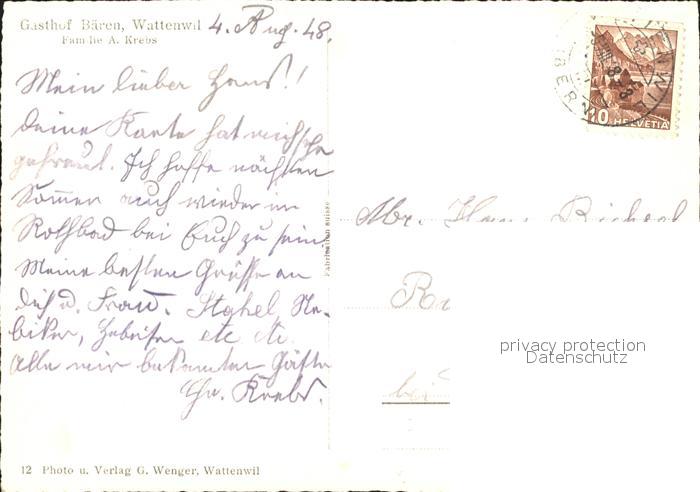 Gasthof Bären, Wattenwil
Familie A. Krebs
4. Aug. 48.
Mein lieber Hans!
Deine Karte hat mich sehr
gefreut. Ich hoffe nächsten
Sommer auch wieder im
Rothbad bei Euch zu sein
Meine besten Grüsse an
dich u. Frau. Stahel, Ne-
biker, etc etc.
Alle mir bekannten Gäste
Chr. Krebs.
Fabrication suisse
12 Photo u. Verlag G. Wenger, Wattenwil
WATTENWIL
(BERN)
10 HELVETIA
Mr. Hans
bei
privacy protection
Datenschutz